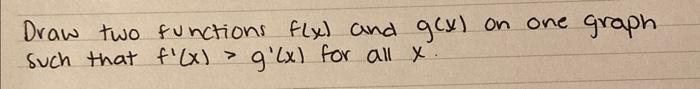 Draw two functions f(x) and g(x) on one graph
such that f'(x) > g'(x) for all x.